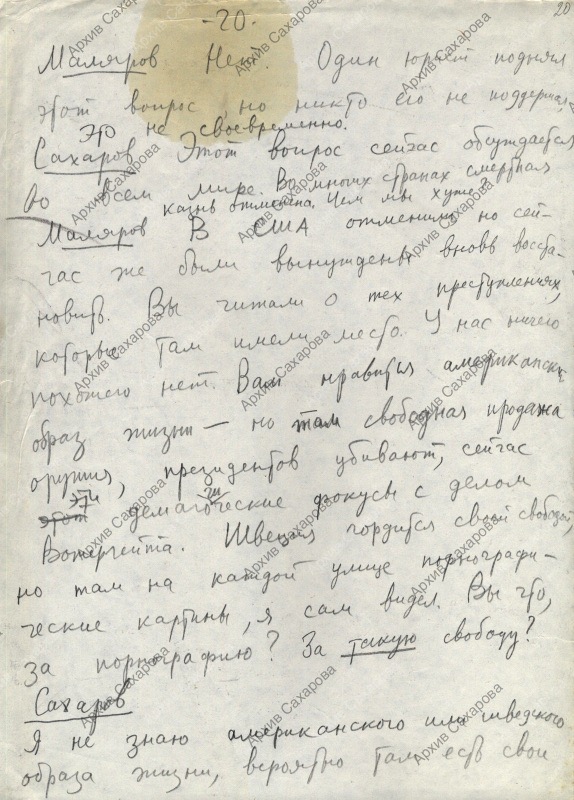 20
-20.
Маляров Нет. Один юрист поднял
этот вопрос, но никто его не поддержал,
это не своевременно.
Сахаров Этот вопрос сейчас обсуждается
во всем мире. Во многих странах смертная
казнь отменена. Чем мы хуже?
Маляров В США отменили, но сей-
час же были вынуждены вновь восста-
новить. Вы читали о тех преступлениях,
которые там имели место. У нас ничего
похожего нет. Вам нравится американский
образ жизни — но там свободная продажа
оружия, президентов убивают, сейчас
эти демагогические фокусы с делом
Вотергейта. Швеция гордится своей свободой,
но там на каждой улице порнографи-
ческие картины, я сам видел. Вы что,
за порнографию? За такую свободу?
Сахаров
Я не знаю американского или шведского
образа жизни, вероятно там есть свои
Архив Сахарова